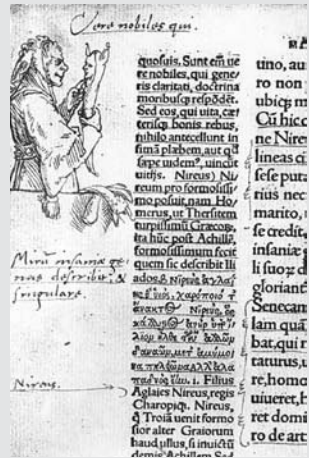 Vere nobiles qui.
quosuis. Sunt em̄ ue
re nobiles, qui gene
ris claritati, doctrina
moribusq; respōdēt.
Sed eos, qui uita, cæ
terisq; bonis rebus,
nihilo antecellunt in
fimā plæbem, aut
sæpe uidem⁹, uincūt
uitijs. Nireus) Ni
reum pro formosissi
mo posuit, nam Ho/
merus, ut Thersitem
turpissimū Græcoꝝ,
ita hūc post Achillē,
formosissimum fecit
quem sic describit Ili
Νιρεὺς
Filius
Aglaies Nireus, regis
Charopiq;. Nireus,
q̄ Troiā uenit formo
sior alter Graiorum
haud ullus, si inuictū
demis Achillem Sed
Mirū insaniæ ge
describit, &
singulare.
Nireus.
tino, au
ro non
ubiq; m
Cū hic c
ne Nireu
lineas ci
sese puta
tius nec
marito,
se credit,
insaniæ
li suoꝝ d
gloriant
Senecam
lam quā
bat, qui r
taturus, u
re, homo
uiueret, h
ret domi
ro de art